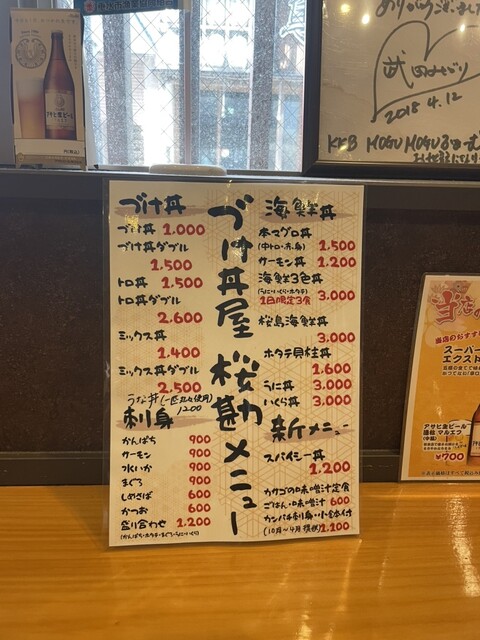 ありがとうございました
武田みどり
2018 4.12
KKB MOGU MOGU
アサヒ生ビール
づけ丼屋 桜勘 メニュー
づけ丼
づけ丼 1,000
づけ丼ダブル
1,500
トロ丼 1,500
トロ丼ダブル
2,600
ミックス丼
1,400
ミックス丼ダブル
2,500
うな丼(一匹丸々使用)
1200
刺身
かんぱち 900
サーモン 900
水いか 900
まぐろ 900
しめさば 600
かつお 600
盛り合わせ 1,200
海鮮丼
本マグロ丼
(中トロ・赤身) 1,500
サーモン丼 1,200
海鮮3色丼
(うに・いくら・ホタテ)
1日限定3食 3,000
桜島海鮮丼
3,000
ホタテ貝柱丼
1,600
うに丼 3,000
いくら丼 3,000
新メニュー
スパイシー丼
1,200
カサゴの味噌汁定食
ごはん・味噌汁 600
カンパチ刺身・小鉢付
(10月〜4月提供) 1,200
当店の
当店のおすす
スーパー
エクスト
アサヒ生ビール
通称 マルエフ
(中瓶)
¥700